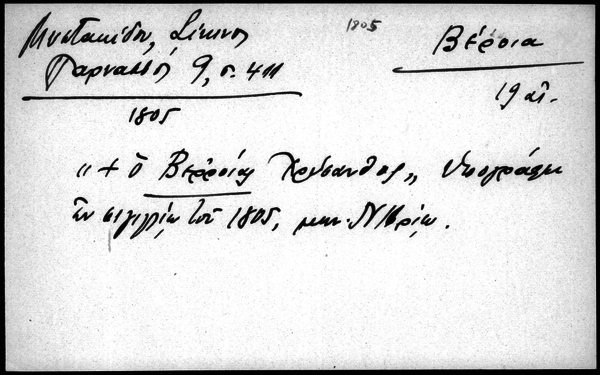 Μυστακίδου, Σίκινος
1805
Βέροια
Παρνασσός 9, σ. 411
19 αἰ.
1805
"+ ὁ Βερροίας Χρύσανθος„ ὑπογράφει
ἐν σιγιλλίῳ τοῦ 1805, μην. Νοεμβρίῳ.